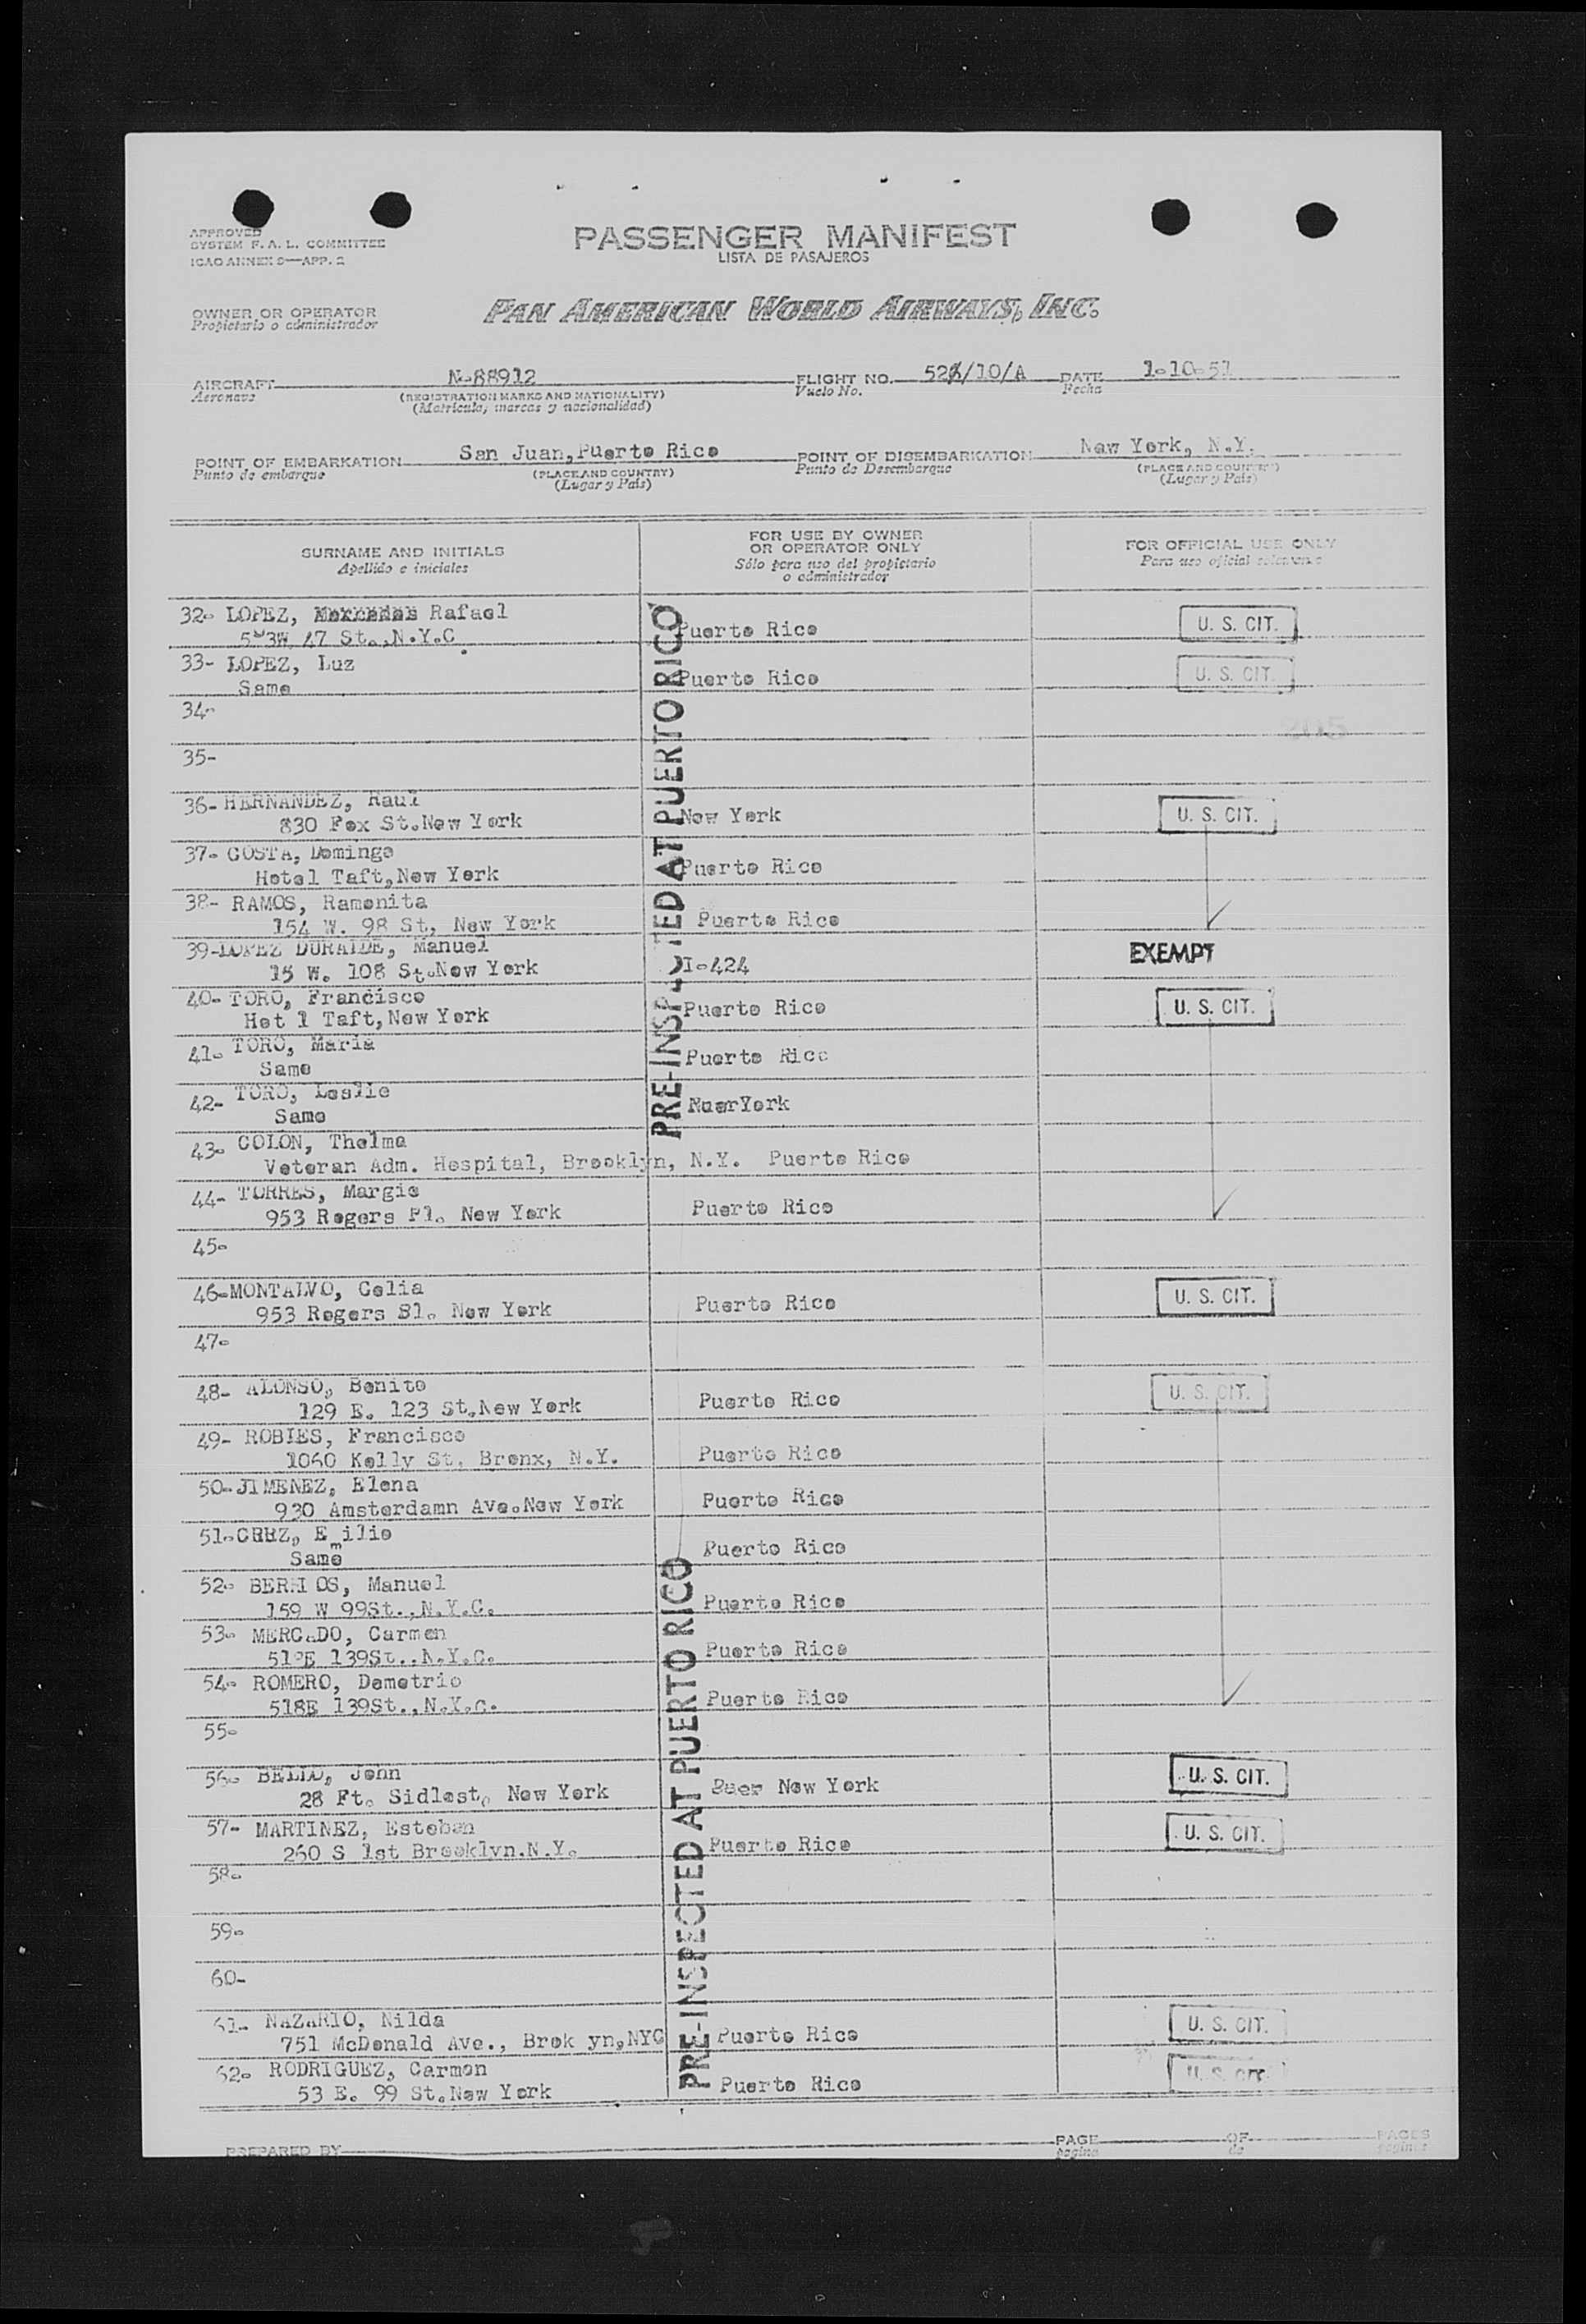 APPROVED
SYSTEM F. A. L. COMMITTEE
ICAO ANNEX 9—APP. 2
PASSENGER MANIFEST
LISTA DE PASAJEROS
OWNER OR OPERATOR
Propietario o administrador
PAN AMERICAN WORLD AIRWAYS, INC.
AIRCRAFT N-88912 FLIGHT NO. 528/10/A DATE 1-10-51
Aeronave (REGISTRATION MARKS AND NATIONALITY) Vuelo No. Fecha
(Matricula, marcas y nacionalidad)
POINT OF EMBARKATION San Juan, Puerto Rico POINT OF DISEMBARKATION New York, N.Y.
Punto de embarque (PLACE AND COUNTRY) Punto de Desembarque (PLACE AND COUNTRY)
(Lugar y Pais) (Lugar y Pais)
SURNAME AND INITIALS
Apellido e iniciales
FOR USE BY OWNER
OR OPERATOR ONLY
Sólo para uso del propietario
o administrador
FOR OFFICIAL USE ONLY
Para uso oficial solamente
32- LOPEZ, Mercedes Rafael
47 St.,N.Y.C Puerto Rico U. S. CIT.
33- LOPEZ, Luz
Same Puerto Rico U. S. CIT.
34-
205
35-
36- HERNANDEZ, Raul
830 Fox St.New York New York U. S. CIT.
37- COSTA, Domingo
Hotel Taft,New York Puerto Rico
38- RAMOS, Ramonita
154 W. 98 St, New York Puerto Rico
39-LOPEZ DURAIDE, Manuel
15 W. 108 St.New York I-424 EXEMPT
40- TORO, Francisco
Hot l Taft,New York Puerto Rico U. S. CIT.
41- TORO, Maria
Same Puerto Rico
42- TORO, Leslie
Same NuerYork
43- COLON, Thelma
Veteran Adm. Hospital, Brooklyn, N.Y. Puerto Rico
44- TORRES, Margie
953 Rogers Pl. New York Puerto Rico
45-
46-MONTALVO, Celia
953 Rogers Bl. New York Puerto Rico U. S. CIT.
47-
48- ALONSO, Benito
129 E. 123 St.New York Puerto Rico U. S. CIT.
49- ROBIES, Francisco
1060 Kelly St. Bronx, N.Y. Puerto Rico
50-JIMENEZ, Elena
930 Amsterdamn Ave.New York Puerto Rico
51-CRUZ, Emilio
Same Puerto Rico
52- BERRIOS, Manuel
159 W 99St.,N.Y.C. Puerto Rico
53- MERCADO, Carmen
518E 139St.,N.Y.C. Puerto Rico
54- ROMERO, Demetrio
518E 139St.,N.Y.C. Puerto Rico
55-
56- BELLO, John
28 Ft. Sidlest, New York New York U. S. CIT.
57- MARTINEZ, Esteban
260 S 1st Brooklyn.N.Y. Puerto Rico U. S. CIT.
58-
59-
60-
61- NAZARIO, Nilda
751 McDonald Ave., Brok yn,NYC Puerto Rico U. S. CIT.
62- RODRIGUEZ, Carmen
53 E. 99 St.New York Puerto Rico U. S. CIT.
PRE-INSPECTED AT PUERTO RICO
PRE-INSPECTED AT PUERTO RICO
PREPARED BY PAGE OF PAGES
pagina de paginas